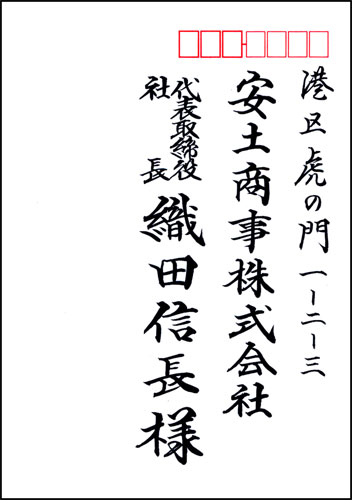 港区虎の門一ー二ー三
安土商事株式会社
代表取締役
社長
織田信長様